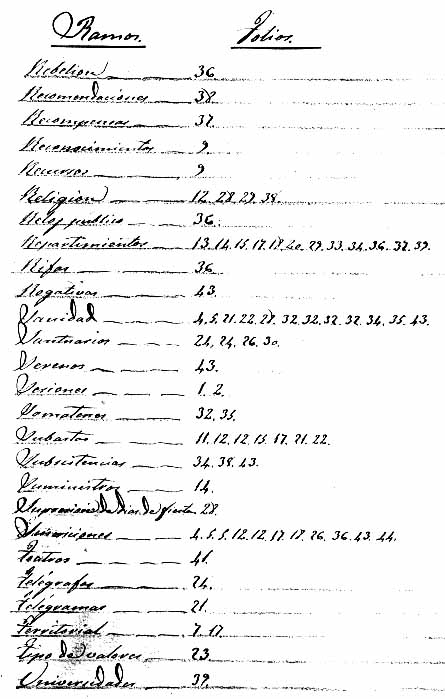 Ramos. Folios.
Rebelion 36
Recomendaciones 38
Recompensas 37
Reconocimientos 9
Recursos 9
Religion 12. 28. 29. 38.
Reloj publico 36.
Repartimientos 13. 14. 15. 17. 18. 20. 29. 33. 34. 36. 37. 39.
Rifas 36
Rogativas 43.
Sanidad 4. 5. 21. 22. 27. 32. 32. 32. 32. 34. 35. 43.
Santuarios 24. 24. 26. 30.
Serenos 43.
Sesiones 1. 2.
Somatenes 32. 35.
Subastas 11. 12. 12. 15. 17. 21. 22.
Subsistencias 34. 38. 43.
Suministros 14.
de dias de fiesta 28.
4. 5. 5. 12. 12. 17. 17. 26. 36. 43. 44.
Teatros 41.
Telégrafos 24.
Telégramas 21.
Territorial 7. 17.
Tipo de valores 23
Universidades 39.